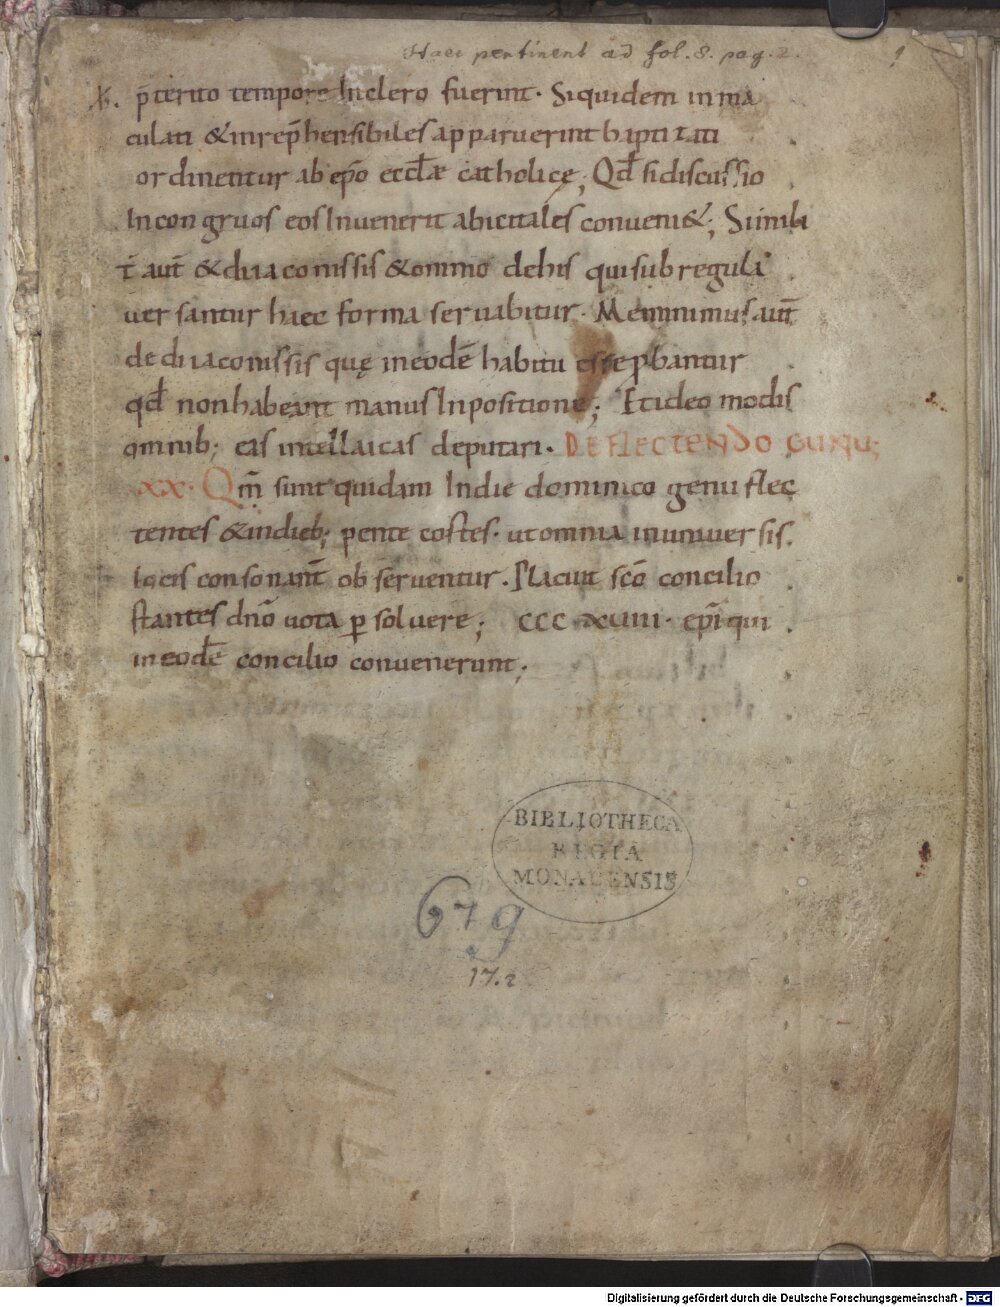 Haec pertinent ad fol. 8. pag. 2. 1
p̄terito tempore In clero fuerint. Siquidem in ma
culati & inrep̄hensibiles apparuerint baptizati
ordinentur ab ep̄o eccłæ catholicę; Qđ si discussio
Incongruos eos Invenerit abici tales conveni&; Simili
t̄ aut̄ & diiaconissis & omnino de his qui sub regula
versantur haec forma servabitur. Meminimus aut̄
de diiaconissis quę in eodē habitu esse ꝓbantur
qđ non habeant manus Inpositionē; Et ideo modis
omnib; eas inter laicas deputari. DE FLECTENDO GENU;
XX. Qm̄ sunt quidam In die dominico genu flec
tentes & in dieb; pentecostes. ut omnia in universis
locis consonant̄ observentur. Placuit scō concilio
stantes dn̄o vota ꝑsolvere; CCC XVIII. ep̄i qui
in eodē concilio convenerunt;
BIBLIOTHECA
REGIA
MONACENSIS
679
17.2
Digitalisierung gefördert durch die Deutsche Forschungsgemeinschaft - DFG